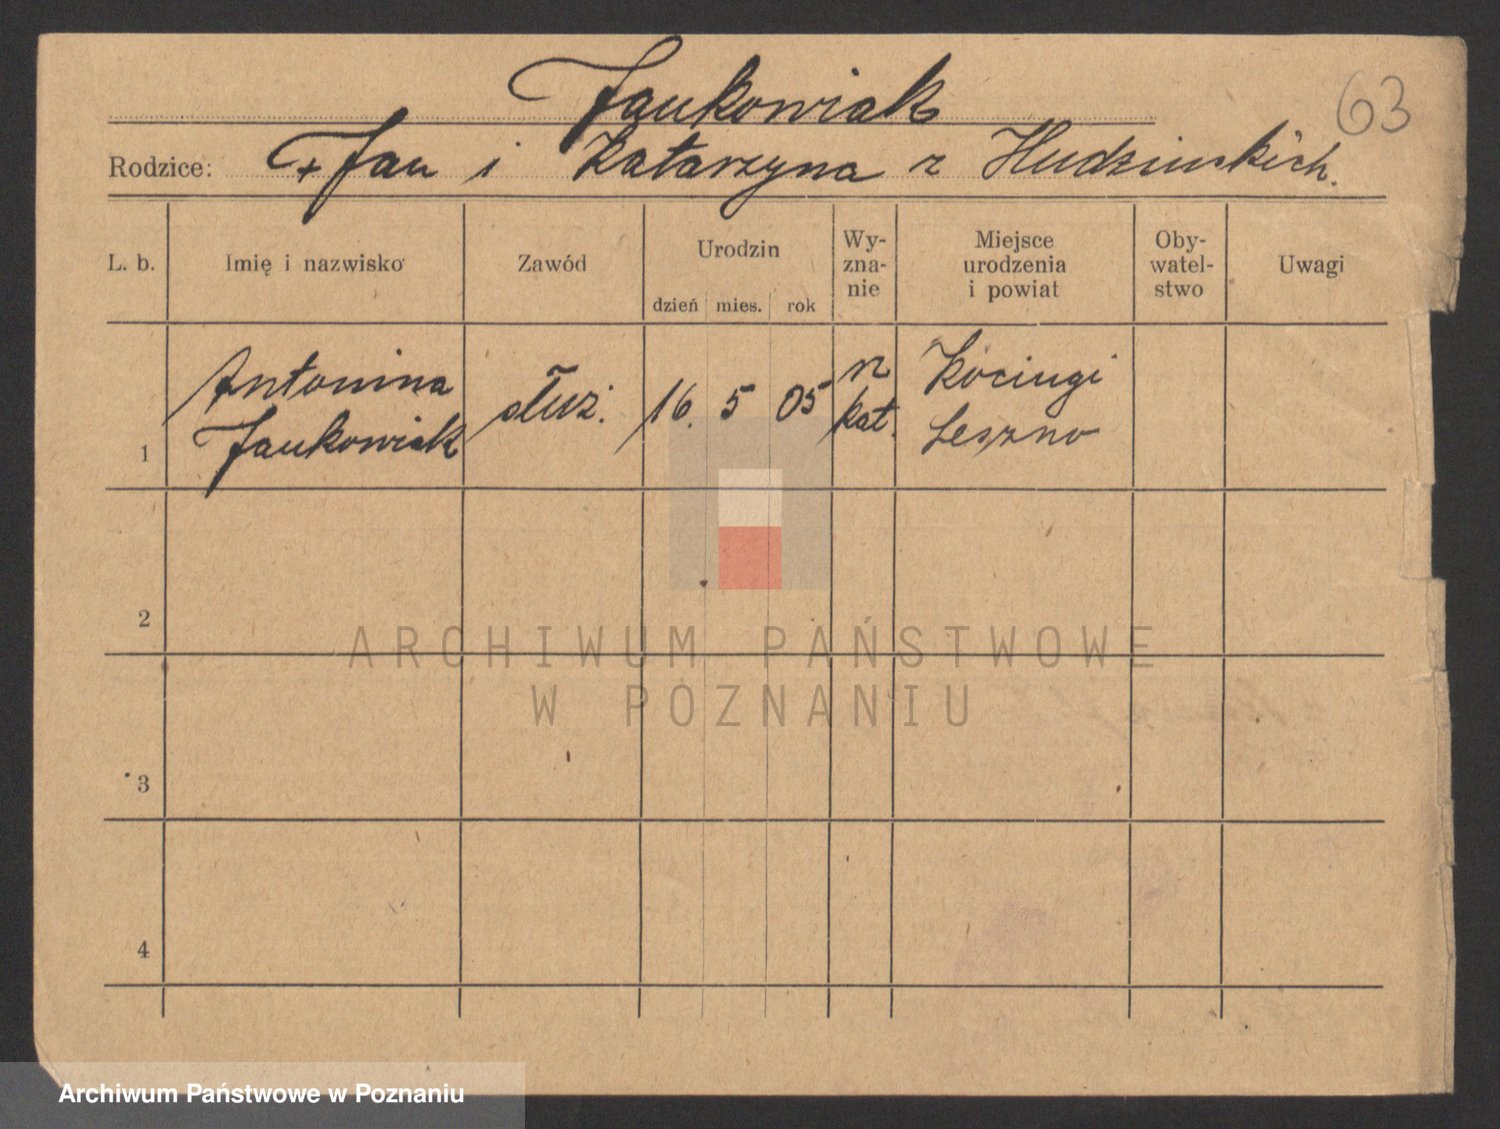 Jankowiak
63
Rodzice: + Jan i Katarzyna z Hudzinskich.
L. b. Imię i nazwisko Zawód Urodzin dzień mies. rok Wy-zna-nie Miejsce urodzenia i powiat Oby-watel-stwo Uwagi
Antonina
Jankowiak
służ.
16. 5 05
r
kat.
Kociugi
Leszno
1
2
3
4
ARCHIWUM PAŃSTWOWE
W POZNANIU
Archiwum Państwowe w Poznaniu